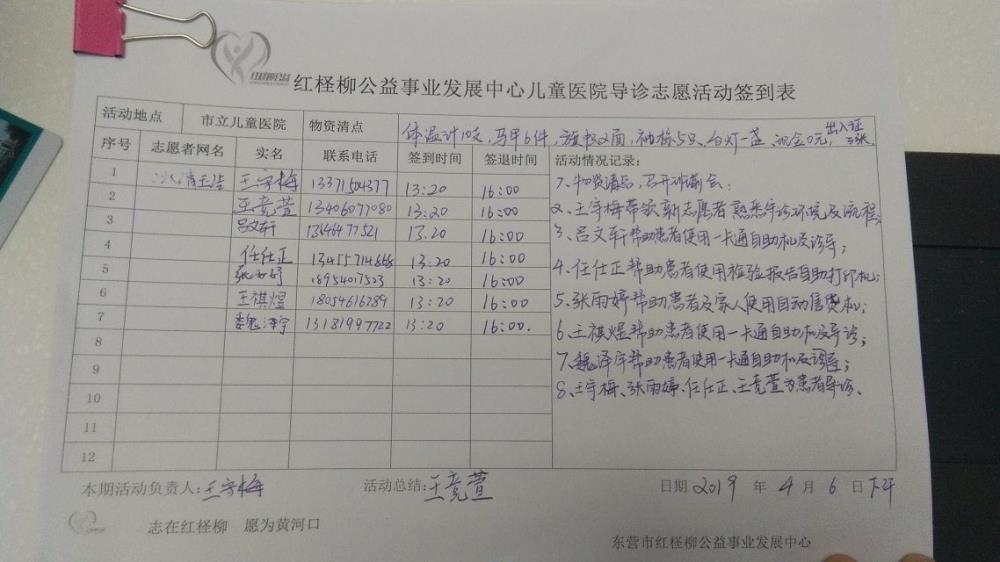 红柽柳公益
红柽柳公益事业发展中心儿童医院导诊志愿活动签到表
活动地点 市立儿童医院 物资清点 体温计10支,马甲6件,旗帜2面,袖标5只,台灯一盏、现金0元,出入证3张
序号 志愿者网名 实名 联系电话 签到时间 签退时间 活动情况记录:
1 冰清玉洁 王守梅 13371504377 13:20 16:00
2 王竞萱 13406077080 13:20 16:00
3 吕文轩 13646477521 13:20 16:00
4 任仕正 13455714668 13:20 16:00
5 张雨婷 18954017523 13:20 16:00
6 王祺煜 18054616289 13:20 16:00
7 魏泽宇 13181997722 13:20 16:00.
8
9
10
11
12
1、物资清点,召开班前会;
2、王守梅带领新志愿者熟悉导诊环境及流程;
3、吕文轩帮助患者使用一卡通自助机及导诊;
4、任仕正帮助患者使用检验报告自助打印机;
5、张雨婷帮助患者及家人使用自动售货机;
6、王祺煜帮助患者使用一卡通自助机及导诊;
7、魏泽宇帮助患者使用一卡通自助机及导诊;
8、王守梅、张雨婷、任仕正、王竞萱为患者导诊、
本期活动负责人:王守梅 活动总结:王竞萱 日期 2019 年 4 月 6 日下午
志在红柽柳 愿为黄河口
东营市红柽柳公益事业发展中心